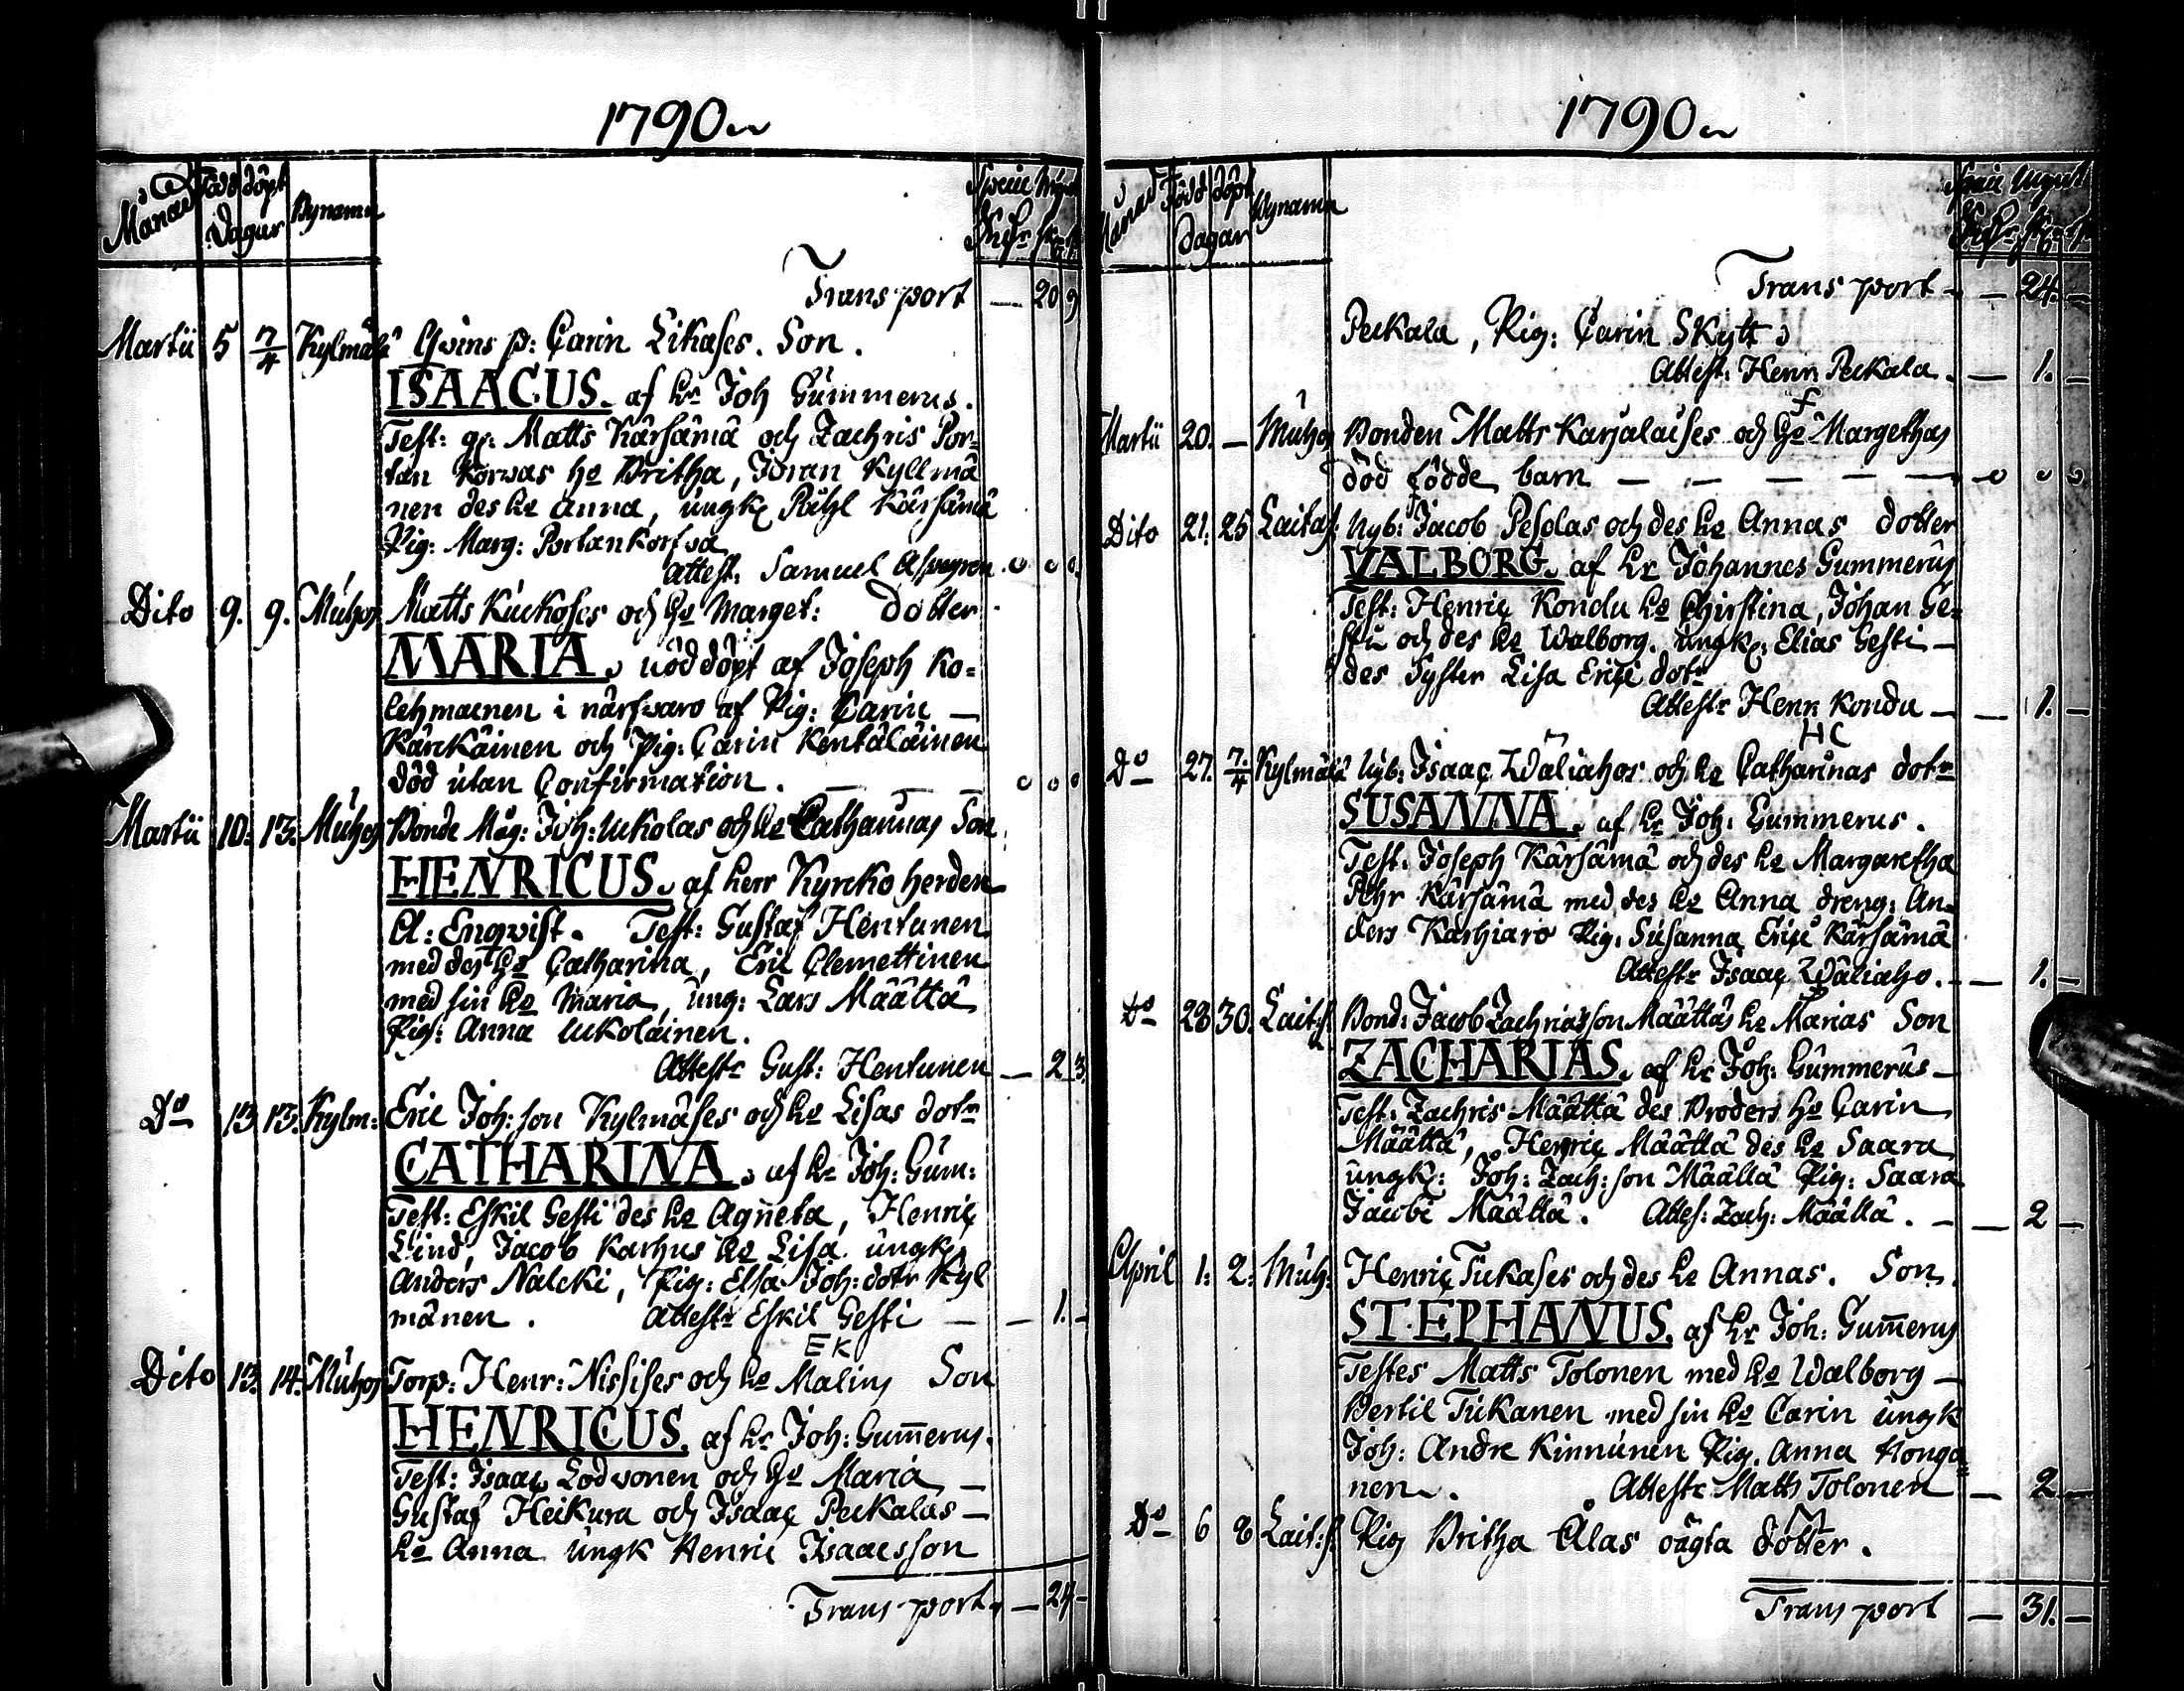 1790
Månad Född döpt Bynamn
Dagar
Transport — 20 9
Martii 5 7/4 Kylmälä Enkns p: Carin Likases. Son.
ISAACUS. af hr Joh Gummerus.
Test: gf. Matts Kärsämä och Zachris Por-
tan Korwas ho Britha, Jöran Kyllmä
nen des ho Anna, ungk Påhl Kärsämä
Pig: Marg: Portankorfwa
Attest: Samuel Aspegren. 0 0 0.
Dito 9. 9. Muhos Matts Kuckoses och ho Marget: dotter
MARIA. nöddöpt af Joseph Ko=
lehmainen i närfwaro af Pig: Carin —
Kärckäinen och Pig: Carin Kentäläinen
död utan Confirmation. — — — 0 0 0
Martii 10. 13. Muhos Bonde Måg: Joh: Ukolas och ho Catharinas Son
HENRICUS. af herr Kyrckoherden
A: Enqvist. Test: Gustaf Hentunen
med des ho Catharina, Eric Clemettinen
med sin ho Maria, ung: Lars Määttä
Pig: Anna Ukoläinen.
Attestr Gust: Hentunen — 2 3.
Do 13 13. Kylm: Eric Joh:son Kylmäses och ho Lisas dotr
CATHARINA. af hr Joh: Gum:
Test: Eskil Gesti des ho Agneta, Henric
Lind, Jacob Karhus ho Lisa ungk
Anders Nalcki, Pig: Elsa Joh: dotr Kyl
mänen. Attestr Eskil Gesti — — 1. —
EK
Dito 13. 14. Muhos Torp: Henr: Nissises och ho Malins Son
HENRICUS. af hr Joh: Gum̄erus.
Test: Isaac Lodvonen och ho Maria —
Gustaf Heikura och Isaac Peckalas —
ho Anna ungk Henric Isaacsson
Transport — 24 —
1790
Månad Född döpt Bynamn
dagar
Transport — — 24. —
Peckala, Pig: Carin Skytt
Attest: Henr Peckala. — 1. —
f
Martii 20. — Muhos Bonden Matts Karjalaises och ho Margethas
död födde barn — — — — — 0 0 0
Dito 21. 25 Laitas: Nyb: Jacob Pesolas och des ho Annas dotter
VALBORG. af hr Johannes Gummerus
Test: Henric Kondu ho Christina, Johan Ge-
sti och des ho Walborg. ungk: Elias Gesti —
des Syster Lisa Erici dotr
Attestr Henr Kondu — — 1. —
HC
Do 27. 7/4 Kylmälä Nyb: Isaac Wäliahos och ho Catharinas dotr
SUSANNA. af hr Joh: Gummerus.
Test: Joseph Kärsämä och des ho Margaretha
Pehr Kärsämä med des ho Anna dreng: An-
ders Karhiaro Pig: Susanna Erici Kärsämä
Attestr Isaac Wäliaho. — 1. —
Do 28 30. Lait:s. Bond: Jacob Zachriasson Määttäs ho Marias Son
ZACHARIAS. af hr Joh: Gummerus —
Test: Zachris Määttä des Broders ho Carin
Määttä, Henric Määttä des ho Saara
ungk: Joh: Zach:son Määttä Pig: Saara
Jacobi Määttä. Attes: Zach: Määttä. — — 2 —
April 1: 2: Muh: Henric Tukases och des ho Annas. Son.
STEPHANUS. af hr Joh: Gum̄erus
Testes Matts Tolonen med ho Walborg —
Bertil Tukanen med sin ho Carin ungk
Joh: Andre Kinnunen Pig. Anna Honga
nen. Attestr Matts Tolonen — 2 —
Do 6 8 Lait:s. Pig Britha Ålas oägta dotter.
Transport — 31. —